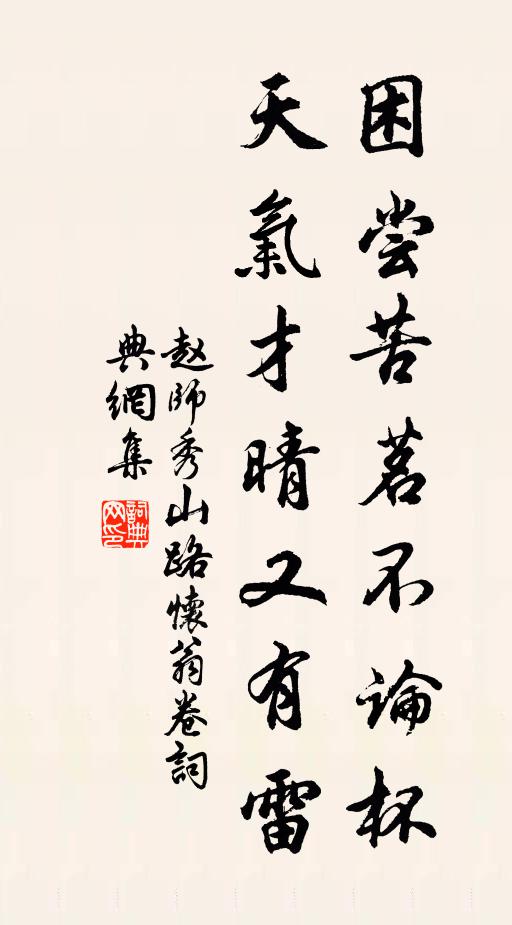 困尝苦茗不論杯
天氣才晴又有雷
赵師秀山路懷翁卷詞
典網集
詞典网印